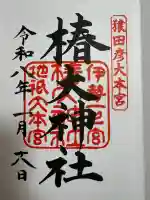 猿田彦大本宮
伊勢一宮
椿大神社
地祇大本宮
令和八年一月六日